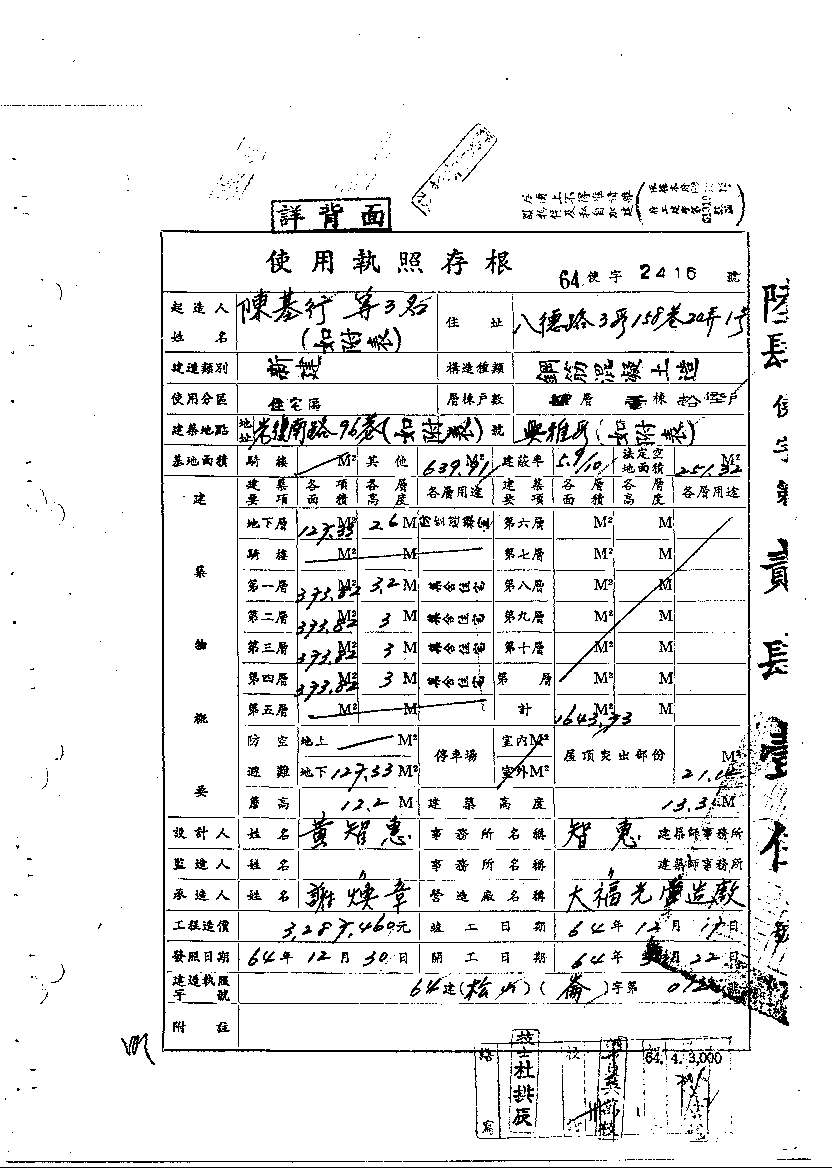 詳背面
使用執照存根
64 使字 2416 號
起造人姓名 陳基行等3名(如附表) 住址 八德路3段158巷24弄1號
建造類別 新建 構造種類 鋼筋混凝土造
使用分區 住宅區 層棟戶數 層 棟 拾 戶
建築地點 地址 光復南路96巷(如附表)號 興雅段(如附表)
基地面積 騎樓 M² 其他 639.91 M² 建蔽率 5.9/10 法定空地面積 251.32 M²
建築物概要 建築要項 各項面積 各層高度 各層用途 建築要項 各層面積 各層高度 各層用途
地下層 127.33 M² 2.6 M 第六層 M² M
騎樓 M² M 第七層 M² M
第一層 373.82 M² 3.2 M 集合住宅 第八層 M² M
第二層 373.82 M² 3 M 集合住宅 第九層 M² M
第三層 373.82 M² 3 M 集合住宅 第十層 M² M
第四層 373.82 M² 3 M 集合住宅 第 層 M² M
第五層 M² M 計 M²
防空避難 地上 M² 停車場 室內M² 屋頂突出部份 M²
地下 127.33 M² 室外M²
簷高 12.2 M 建築高度 13.3 M
設計人 姓名 黃智惠 事務所名稱 智惠 建築師事務所
監造人 姓名 〃 事務所名稱 〃 建築師事務所
承造人 姓名 謝煥章 營造廠名稱 大福光營造廠
工程造價 3,287,460元 竣工日期 64年12月17日
發照日期 64年12月30日 開工日期 64年 月22日
建造執照字號 64建(松山)(崙)字第
附註
技士杜拱辰
64. 4. 3,000